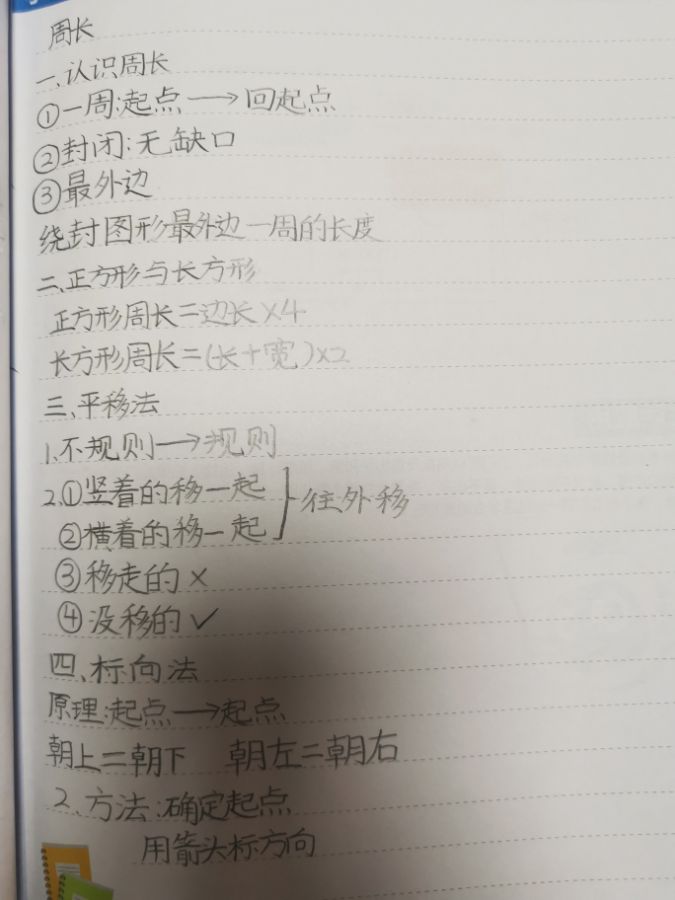 周长
一、认识周长
①一周:起点→回起点
②封闭:无缺口
③最外边
绕封图形最外边一周的长度
二、正方形与长方形
正方形周长=边长×4
长方形周长=(长+宽)×2
三、平移法
1.不规则→规则
2.①竖着的移一起
②横着的移一起 往外移
③移走的×
④没移的✓
四、标向法
原理:起点→起点
朝上=朝下 朝左=朝右
2.方法:确定起点
用箭头标方向